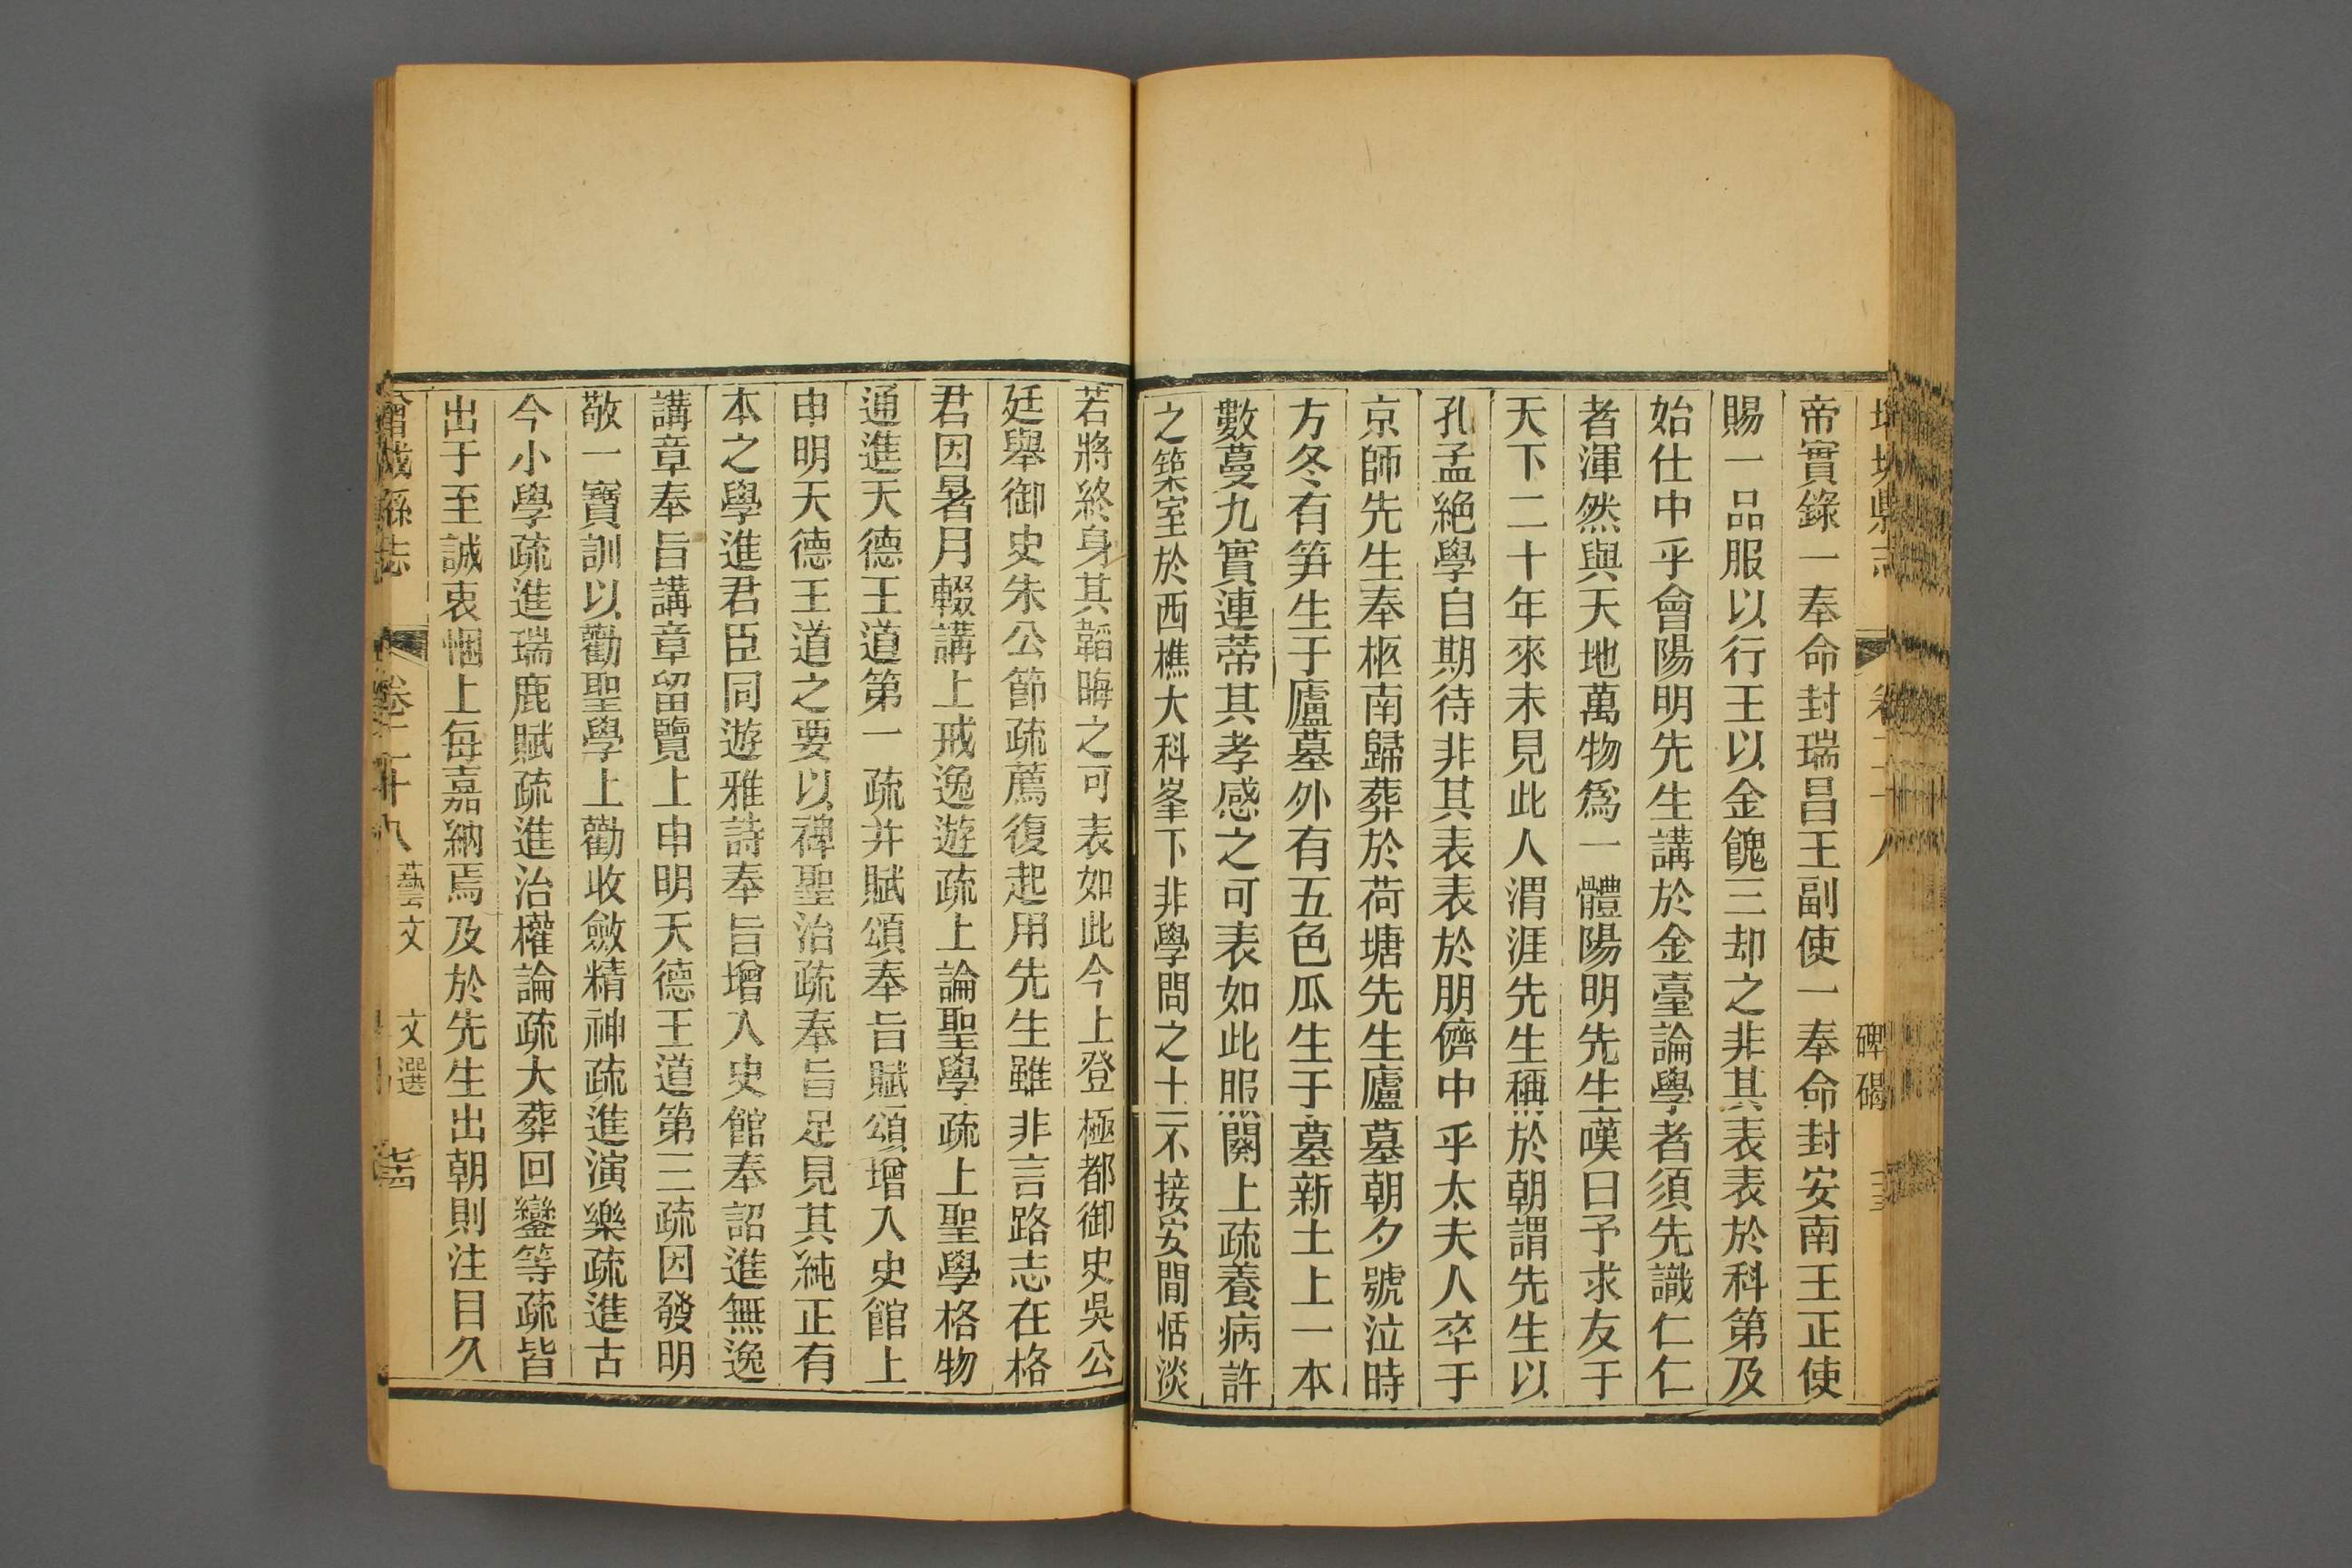 碑碣
帝實錄一奉命封瑞昌王副使一奉命封安南王正使
賜一品服以行王以金餽三却之非其表表於科第及
始仕中乎會陽明先生講於金臺論學者須先識仁仁
者渾然與天地萬物爲一體陽明先生嘆曰予求友于
天下二十年來未見此人渭涯先生稱於朝謂先生以
孔孟絕學自期待非其表表於朋儕中乎太夫人卒于
京師先生奉柩南歸葬於荷塘先生廬墓朝夕號泣時
方冬有笋生于廬墓外有五色瓜生于墓新土上一本
數蔓九實連蒂其孝感之可表如此服闋上疏養病許
之築室於西樵大科峯下非學問之士不接安閒恬淡
若將終身其韜晦之可表如此今上登極都御史吳公
廷舉御史朱公節疏薦復起用先生雖非言路志在格
君因暑月輟講上戒逸遊疏上論聖學疏上聖學格物
通進天德王道第一疏并賦頌奉旨賦頌增入史館上
申明天德王道之要以裨聖治疏奉旨足見其純正有
本之學進君臣同遊雅詩奉旨增入史館奉詔進無逸
講章奉旨講章留覽上申明天德王道第三疏因發明
敬一寶訓以勸聖學上勸收斂精神疏進演樂疏進古
今小學疏進瑞鹿賦疏進治權論疏大葬回鑾等疏皆
出于至誠衷悃上每嘉納焉及於先生出朝則注目久
增城縣志 卷二十八 藝文 文選